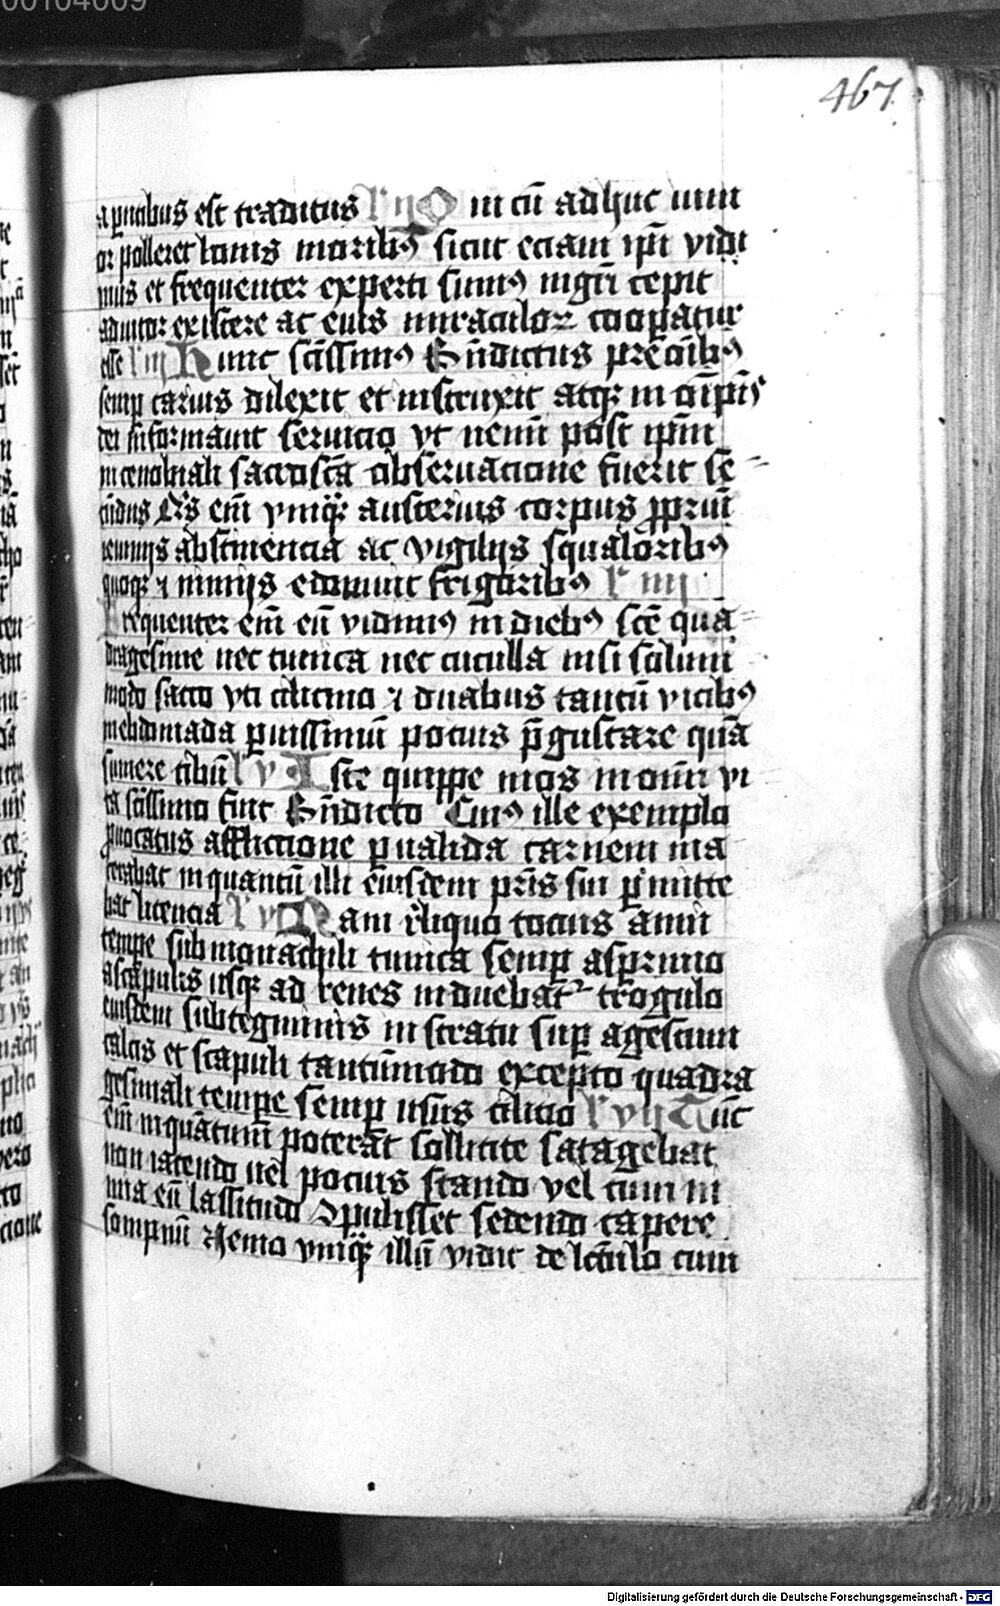 467
a pueribus est traditus l' ii Q ui cū adhuc iuni
or polleret bonis moribꝰ sicut eciam ip̄i vidi
mus et frequenter experti sumꝰ mgr̄i cepit
adiutor existere ac eius miraculoꝝ cooꝑatur
esse l' iii Hunc sc̄issimꝰ Bn̄dictus pre oībꝰ
semꝑ carius dilexit et instruxit atqꝫ in oīpn̄s
dei informauit seruicio vt nemī post ip̄m
in cenobiali sacrosc̄a obseruacione fuerit se-
cūdus Hūs em̄ vniqꝫ austerius corpus ꝓpriū
ieiunijs abstinencia ac vigilijs squaloribꝰ
quoqꝫ ⁊ nimijs edomuit frigoribꝰ l' iiii
Frequenter em̄ eū vidimꝰ in diebꝰ sc̄e qua-
dragesime nec tunica nec cuculla nisi solum
modo sacco vti cilicino ⁊ duabus tantū vicibꝰ
in ebdomada ꝑuissimū pocius p̄gustare quā
sumere cibū l' v Iste quippe mos in om̄i vi
ta sc̄issimo fuit Bn̄dicto Cuiꝰ ille exemplo
ꝓuocatus affliccione ꝑualida carnem ma
cerabat inquantū illi eiusdem pr̄is sui ꝑmitte
bat licencia l' vi Nam reliquo tocius anni
tempe sub monachili tunica semꝑ asꝑrimo
a scapulis usqꝫ ad renes induebat² trogulo
eiusdem subtegminis in stratu suꝑ agestum
calcis et scapuli tantūmodo excepto quadra
gesimali tempe semꝑ usus cilicio l' vii Tūc
em̄ inquātum poterat sollicite satagebat
non iacendo uel pocius stando vel cum ni
mia eū lassitudo ꝯpulisset sedendo capere
sompnū Nemo vniqꝫ illū vidit de lc̄ulo cum
Digitalisierung gefördert durch die Deutsche Forschungsgemeinschaft - DFG